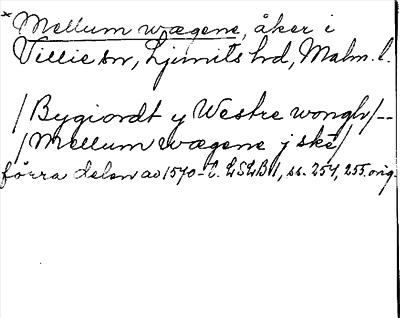 * Mellum wægene, åker i
Villie sn, Ljunits hd, Malm. l.
/Bygiordt y Westre wongh/--
/Mellum wægene j ske/
förra delen av 1570-t. LSLB 1, ss. 254, 255. orig.